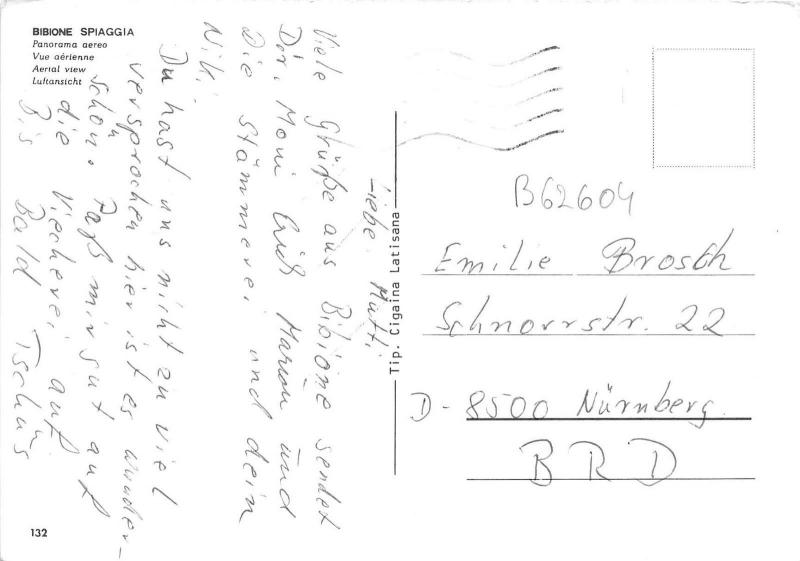 BIBIONE SPIAGGIA
Panorama aereo
Vue aérienne
Aerial view
Luftansicht
Liebe Mutti
Viele Grüße aus Bibione sendet
Dir, Moni Erich Marion und
Die Stämmerei und dein
Niki
Du hast uns nicht zu viel
versprochen hier ist es wunder-
schön. Paß mir gut auf
die Viecherei auf
Bis Bald Tschüs
132
Tip. Cigaina Latisana
B62604
Emilie Brosch
Schnorrstr. 22
D-8500 Nürnberg
BRD